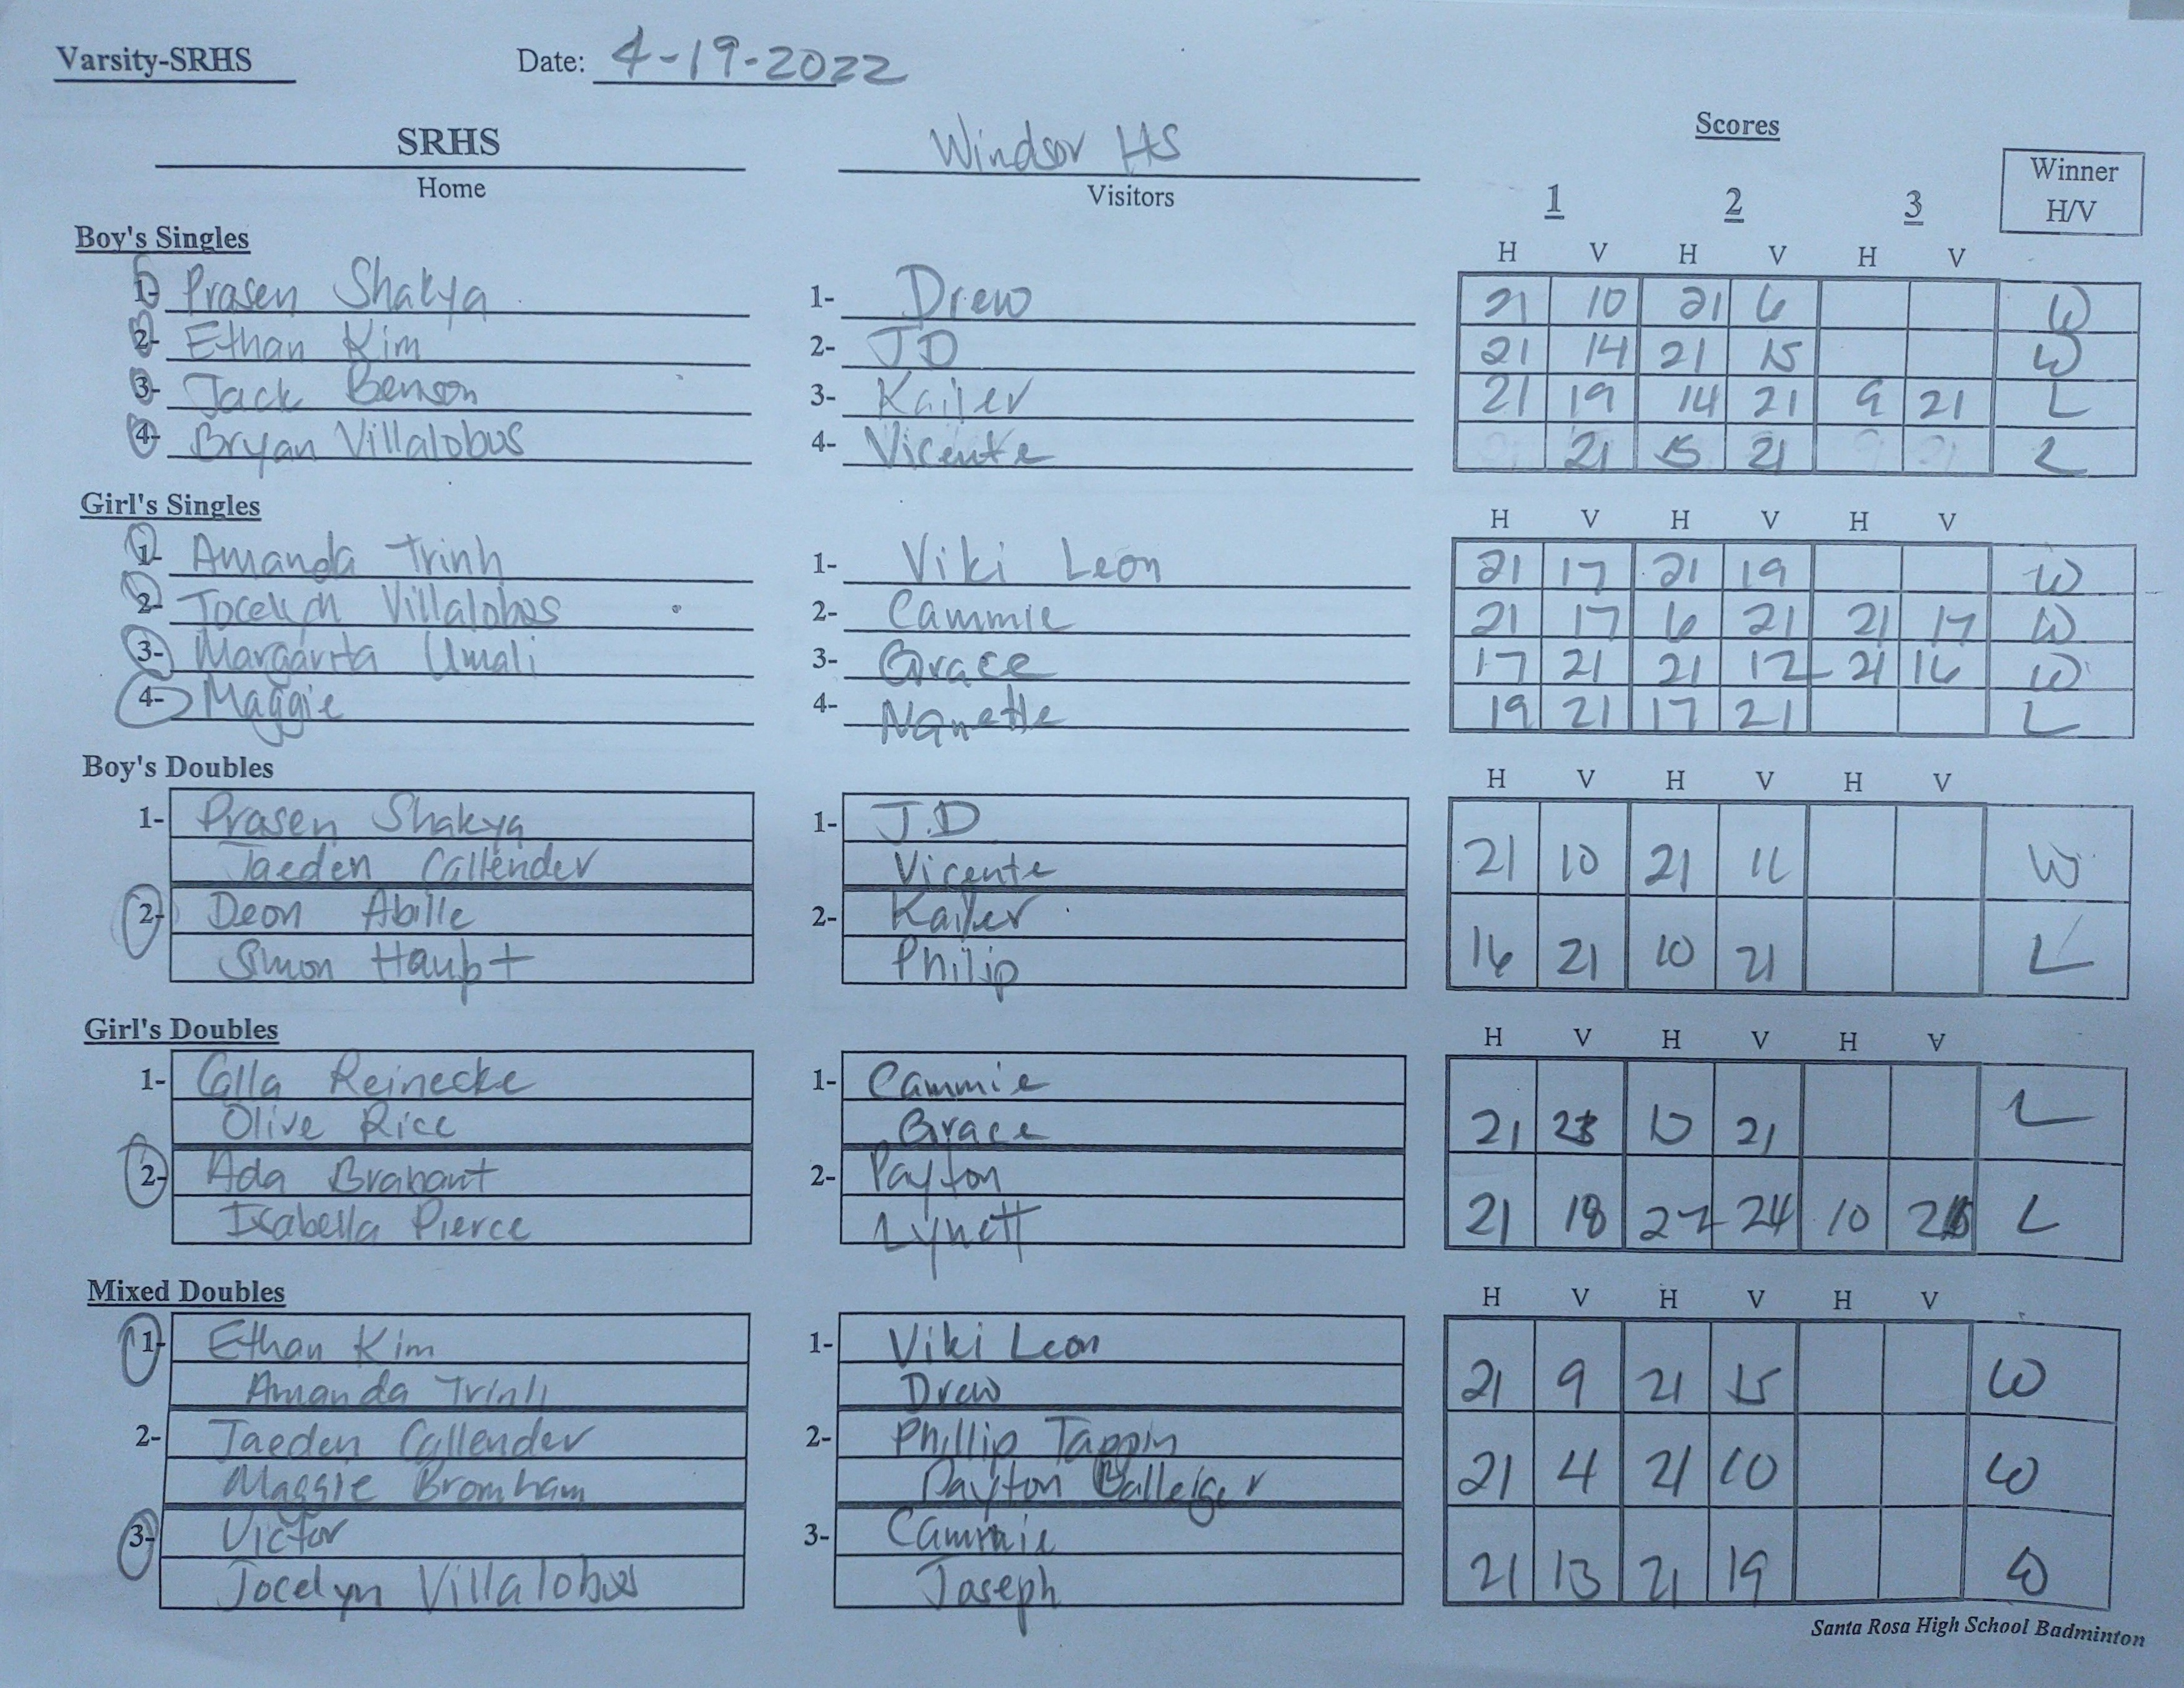 Varsity-SRHS Date: 4-19-2022
SRHS Windsor HS Scores
Home Visitors 1 2 3 Winner H/V
Boy's Singles H V H V H V
1- Prasen Shakya 1- Drew 21 10 21 6 W
2- Ethan Kim 2- JD 21 14 21 15 W
3- Jack Benson 3- Kaiser 21 19 14 21 9 21 L
4- Bryan Villalobos 4- Vicente 21 15 21 L
Girl's Singles H V H V H V
1- Amanda Trinh 1- Viki Leon 21 17 21 19 W
2- Jocelyn Villalobos 2- Cammie 21 17 6 21 21 17 W
3- Margarita Umali 3- Grace 17 21 21 12 21 16 W
4- Maggie 4- 19 21 17 21 L
Boy's Doubles H V H V H V
1- Prasen Shakya 1- J.D
Jaeden Callender Vicente 21 10 21 11 W
2- Deon Abille 2-
Simon Haupt Philip 16 21 10 21 L
Girl's Doubles H V H V H V
1- Calla Reinecke 1- Cammie
Olive Rice Grace 21 23 21 L
2- Ada Brabant 2- Payton
Isabella Pierce Lynett 21 18 22 24 10 L
Mixed Doubles H V H V H V
1- Ethan Kim 1- Viki Leon
Amanda Trinh Drew 21 9 21 15 W
2- Jaeden Callender 2- Phillip Tappin
Maggie Bromham Payton 21 4 21 10 W
3- Victor 3- Cammie
Jocelyn Villalobos Joseph 21 13 21 19 W
Santa Rosa High School Badminton